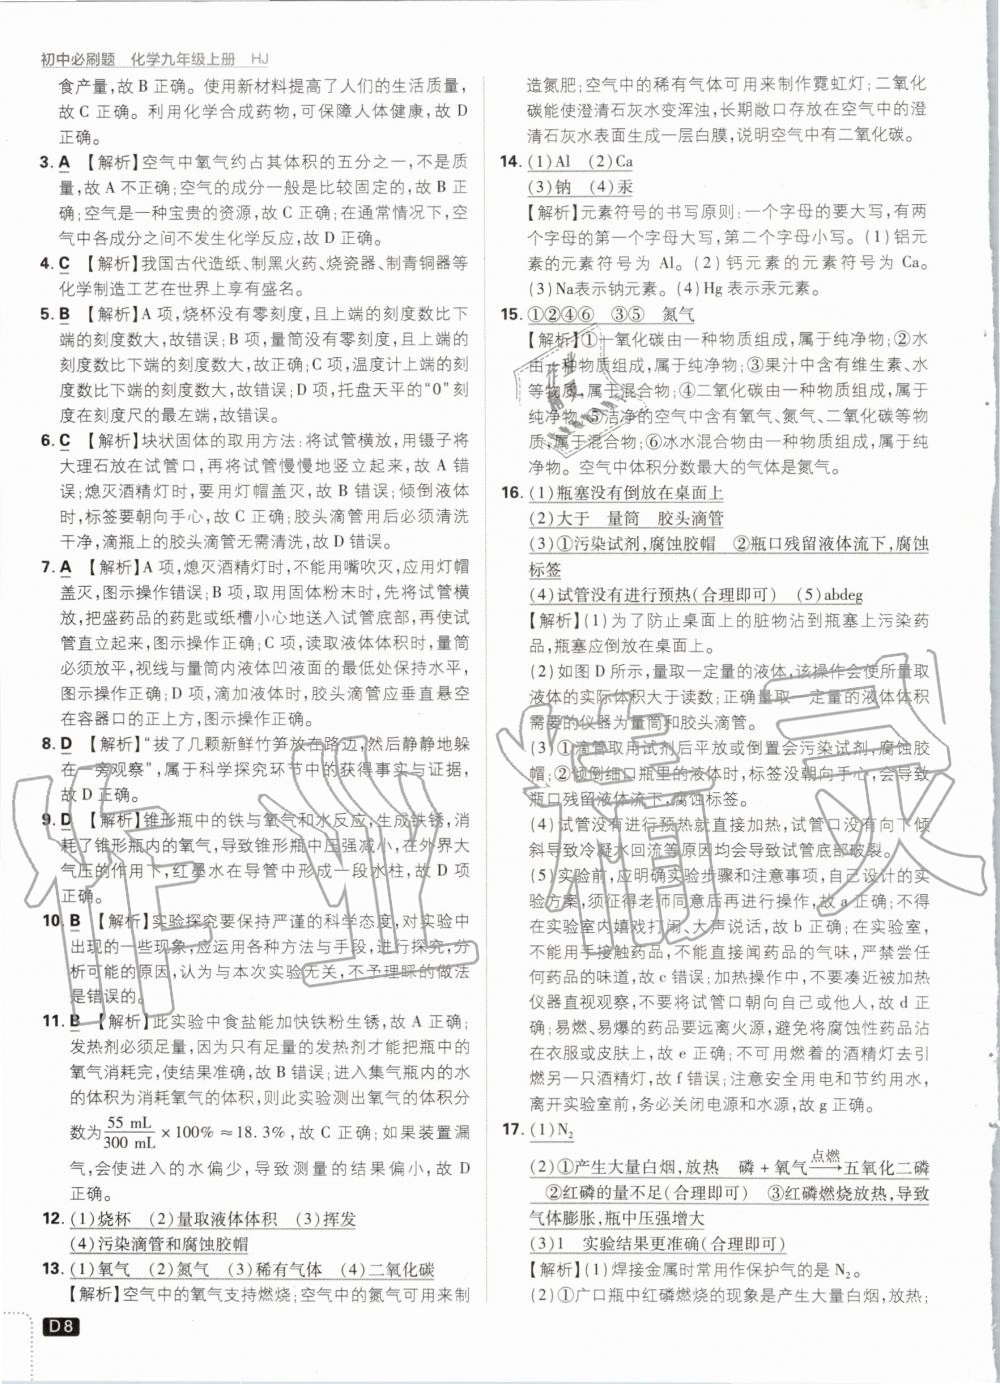 初中必刷题 化学九年级上册 HJ
食产量,故 B 正确。使用新材料提高了人们的生活质量,
故 C 正确。利用化学合成药物,可保障人体健康,故 D
正确。
3. A 【解析】空气中氧气约占其体积的五分之一,不是质
量,故 A 不正确;空气的成分一般是比较固定的,故 B 正
确;空气是一种宝贵的资源,故 C 正确;在通常情况下,空
气中各成分之间不发生化学反应,故 D 正确。
4. C 【解析】我国古代造纸、制黑火药、烧瓷器、制青铜器等
化学制造工艺在世界上享有盛名。
5. B 【解析】A 项,烧杯没有零刻度,且上端的刻度数比下
端的刻度数大,故错误;B 项,量筒没有零刻度,且上端的
刻度数比下端的刻度数大,故正确;C 项,温度计上端的刻
度数比下端的刻度数大,故错误;D 项,托盘天平的“0”刻
度在刻度尺的最左端,故错误。
6. C 【解析】块状固体的取用方法:将试管横放,用镊子将
大理石放在试管口,再将试管慢慢地竖立起来,故 A 错
误;熄灭酒精灯时,要用灯帽盖灭,故 B 错误;倾倒液体
时,标签要朝向手心,故 C 正确;胶头滴管用后必须清洗
干净,滴瓶上的胶头滴管无需清洗,故 D 错误。
7. A 【解析】A 项,熄灭酒精灯时,不能用嘴吹灭,应用灯帽
盖灭,图示操作错误;B 项,取用固体粉末时,先将试管横
放,把盛药品的药匙或纸槽小心地送入试管底部,再使试
管直立起来,图示操作正确;C 项,读取液体体积时,量筒
必须放平,视线与量筒内液体凹液面的最低处保持水平,
图示操作正确;D 项,滴加液体时,胶头滴管应垂直悬空
在容器口的正上方,图示操作正确。
8. D 【解析】“拔了几颗新鲜竹笋放在路边,然后静静地躲
在一旁观察”,属于科学探究环节中的获得事实与证据,
故 D 正确。
9. D 【解析】锥形瓶中的铁与氧气和水反应,生成铁锈,消
耗了锥形瓶内的氧气,导致锥形瓶中压强减小,在外界大
气压的作用下,红墨水在导管中形成一段水柱,故 D 项
正确。
10. B 【解析】实验探究要保持严谨的科学态度,对实验中
出现的一些现象,应运用各种方法与手段,进行探究,分
析可能的原因,认为与本次实验无关,不予理睬的做法
是错误的。
11. B 【解析】此实验中食盐能加快铁粉生锈,故 A 正确;
发热剂必须足量,因为只有足量的发热剂才能把瓶中的
氧气消耗完,使结果准确,故 B 错误;进入集气瓶内的水
的体积为消耗氧气的体积,则此实验测出氧气的体积分
数为 55 mL/300 mL ×100%≈18.3%,故 C 正确;如果装置漏
气,会使进入的水偏少,导致测量的结果偏小,故 D
正确。
12. (1)烧杯 (2)量取液体体积 (3)挥发
(4)污染滴管和腐蚀胶帽
13. (1)氧气 (2)氮气 (3)稀有气体 (4)二氧化碳
【解析】空气中的氧气支持燃烧;空气中的氮气可用来制
D8
造氮肥;空气中的稀有气体可用来制作霓虹灯;二氧化
碳能使澄清石灰水变浑浊,长期敞口存放在空气中的澄
清石灰水表面生成一层白膜,说明空气中有二氧化碳。
14. (1)Al (2)Ca
(3)钠 (4)汞
【解析】元素符号的书写原则:一个字母的要大写,有两
个字母的第一个字母大写,第二个字母小写。(1)铝元
素的元素符号为 Al。(2)钙元素的元素符号为 Ca。
(3)Na表示钠元素。(4)Hg 表示汞元素。
15. ①②④⑥ ③⑤ 氮气
【解析】①一氧化碳由一种物质组成,属于纯净物;②水
由一种物质组成,属于纯净物;③果汁中含有维生素、水
等物质,属于混合物;④二氧化碳由一种物质组成,属于
纯净物;⑤洁净的空气中含有氧气、氮气、二氧化碳等物
质,属于混合物;⑥冰水混合物由一种物质组成,属于纯
净物。空气中体积分数最大的气体是氮气。
16. (1)瓶塞没有倒放在桌面上
(2)大于 量筒 胶头滴管
(3)①污染试剂,腐蚀胶帽 ②瓶口残留液体流下,腐蚀
标签
(4)试管没有进行预热(合理即可) (5)abdeg
【解析】(1)为了防止桌面上的脏物沾到瓶塞上污染药
品,瓶塞应倒放在桌面上。
(2)如图 D 所示,量取一定量的液体,该操作会使所量取
液体的实际体积大于读数;正确量取一定量的液体体积
需要的仪器为量筒和胶头滴管。
(3)①滴管取用试剂后平放或倒置会污染试剂,腐蚀胶
帽;②倾倒细口瓶里的液体时,标签没朝向手心,会导致
瓶口残留液体流下,腐蚀标签。
(4)试管没有进行预热就直接加热,试管口没有向下倾
斜导致冷凝水回流等原因均会导致试管底部破裂。
(5)实验前,应明确实验步骤和注意事项,自己设计的实
验方案,须征得老师同意后再进行操作,故 a 正确;不得
在实验室内嬉戏打闹、大声说话,故 b 正确;在实验室,
不能用手接触药品,不能直接闻药品的气味,严禁尝任
何药品的味道,故 c 错误;加热操作中,不要凑近被加热
仪器直视观察,不要将试管口朝向自己或他人,故 d 正
确;易燃、易爆的药品要远离火源,避免将腐蚀性药品沾
在衣服或皮肤上,故 e 正确;不可用燃着的酒精灯去引
燃另一只酒精灯,故 f 错误;注意安全用电和节约用水,
离开实验室前,务必关闭电源和水源,故 g 正确。
17. (1)N₂
(2)①产生大量白烟,放热 磷+氧气 点燃→ 五氧化二磷
②红磷的量不足(合理即可) ③红磷燃烧放热,导致
气体膨胀,瓶中压强增大
(3)1 实验结果更准确(合理即可)
【解析】(1)焊接金属时常用作保护气的是 N₂。
(2)①广口瓶中红磷燃烧的现象是产生大量白烟,放热;
作业精灵